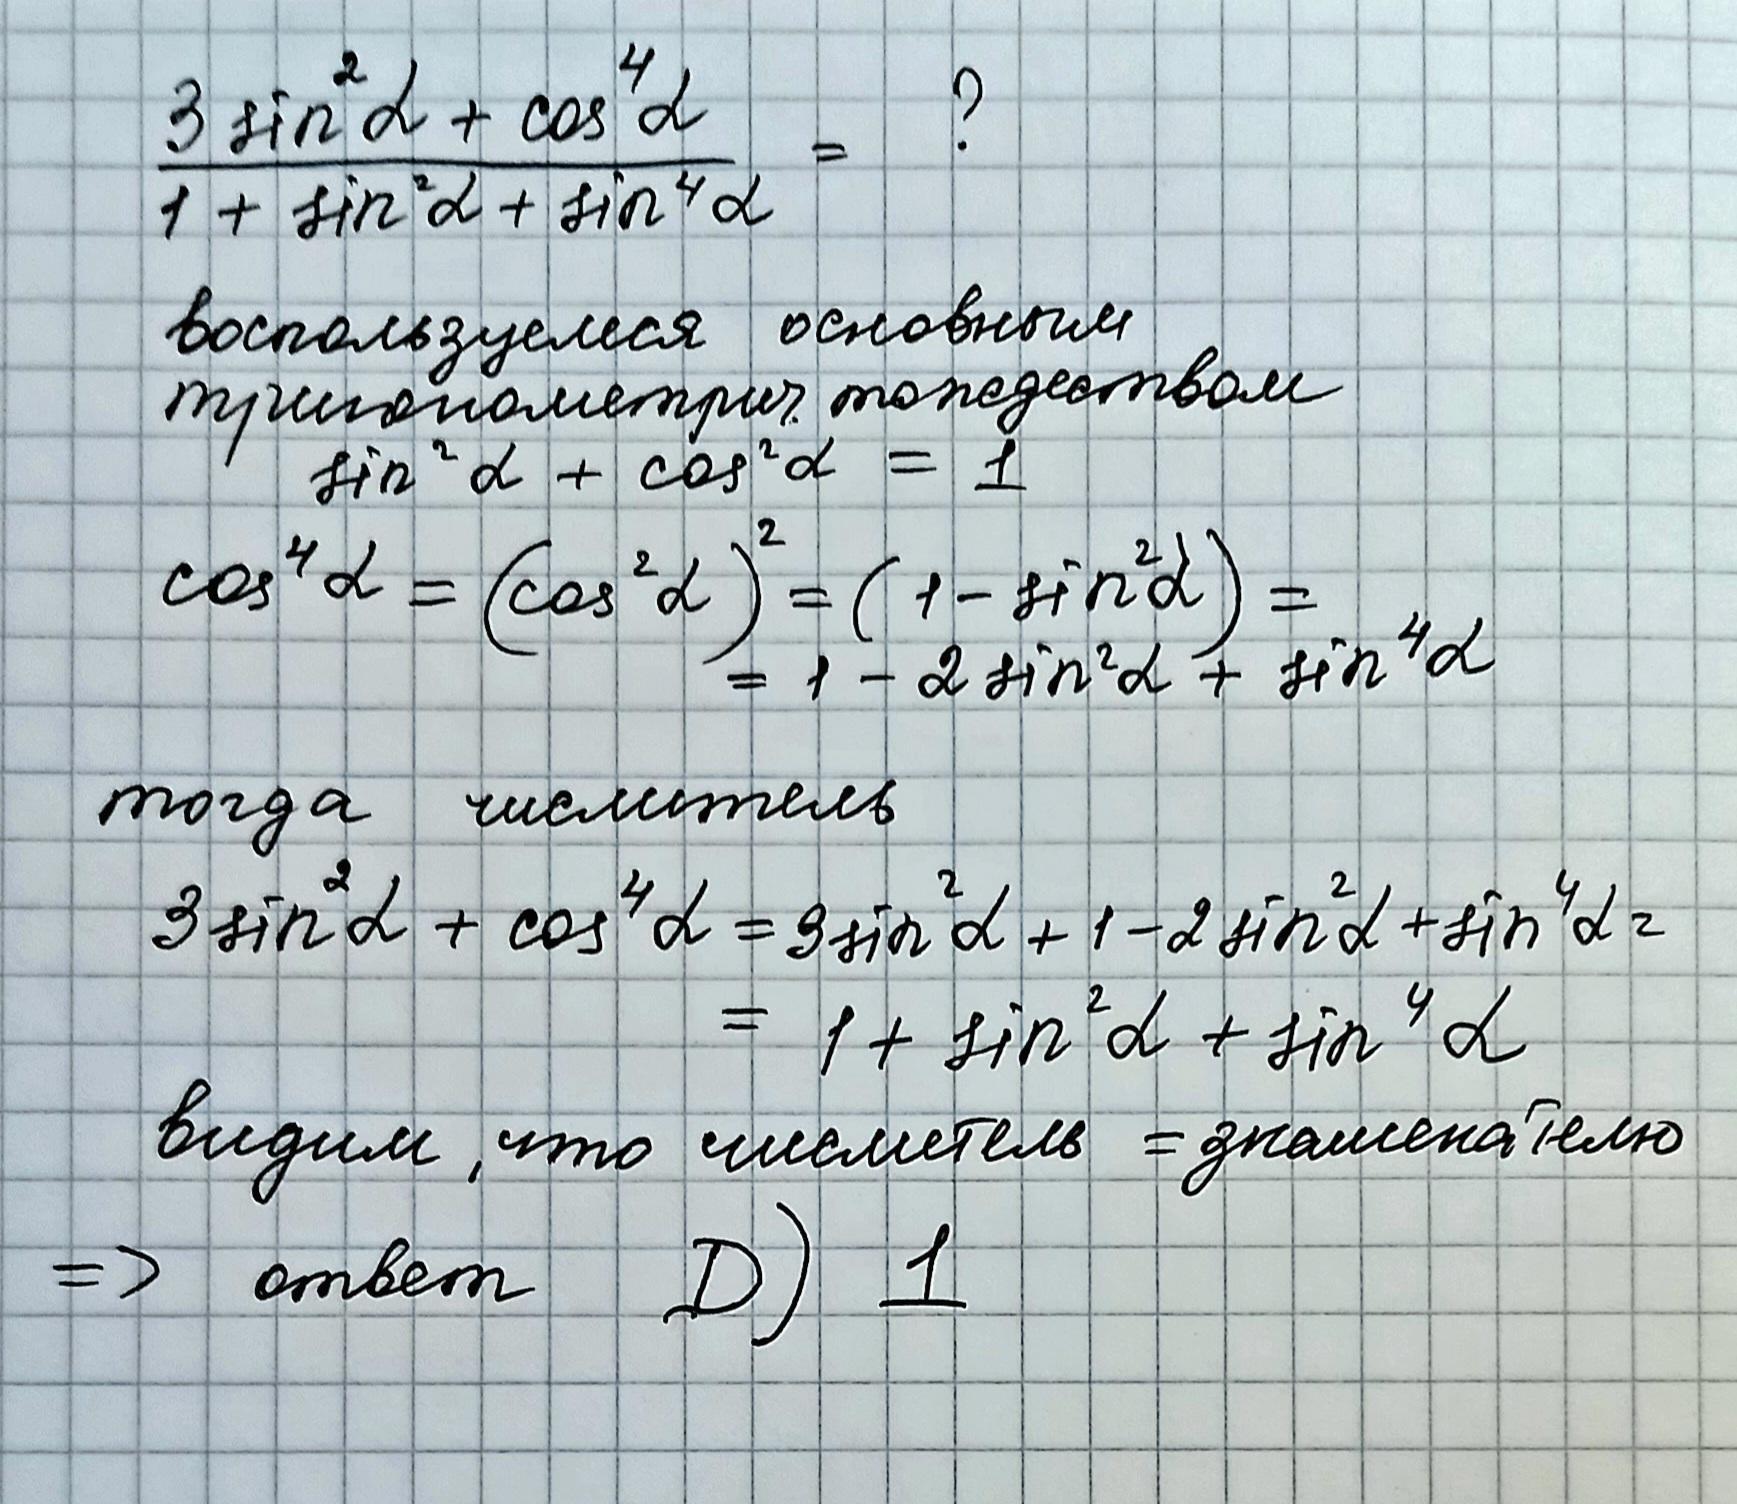 3 sin²α + cos⁴α
1 + sin²α + sin⁴α
= ?
воспользуемся основным
тригонометрич. тождеством
sin²α + cos²α = 1
cos⁴α = (cos²α)² = (1 - sin²α) =
= 1 - 2 sin²α + sin⁴α
тогда числитель
3 sin²α + cos⁴α = 3 sin²α + 1 - 2 sin²α + sin⁴α =
= 1 + sin²α + sin⁴α
видим, что числитель = знаменателю
=> ответ D) 1